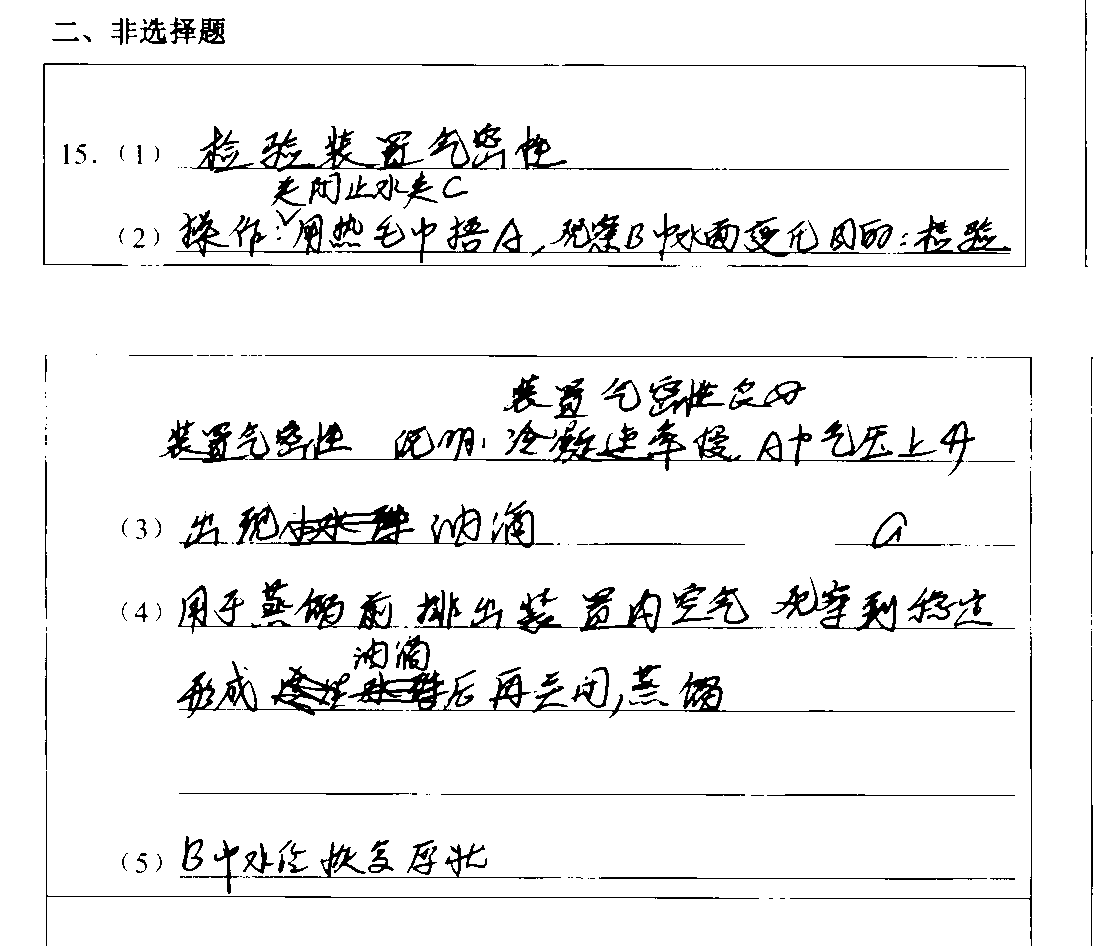 二、非选择题
15.（1）检验装置气密性
关闭止水夹C
（2）操作：用热毛巾捂A，观察B中水面变化 目的：检验
装置气密性良好
装置气密性 说明：冷凝速率慢，A中气压上升
（3）出现油滴 a
（4）用于蒸馏前排出装置内空气 观察到稳定
油滴
形成后再关闭，蒸馏
（5）B中水位恢复原状